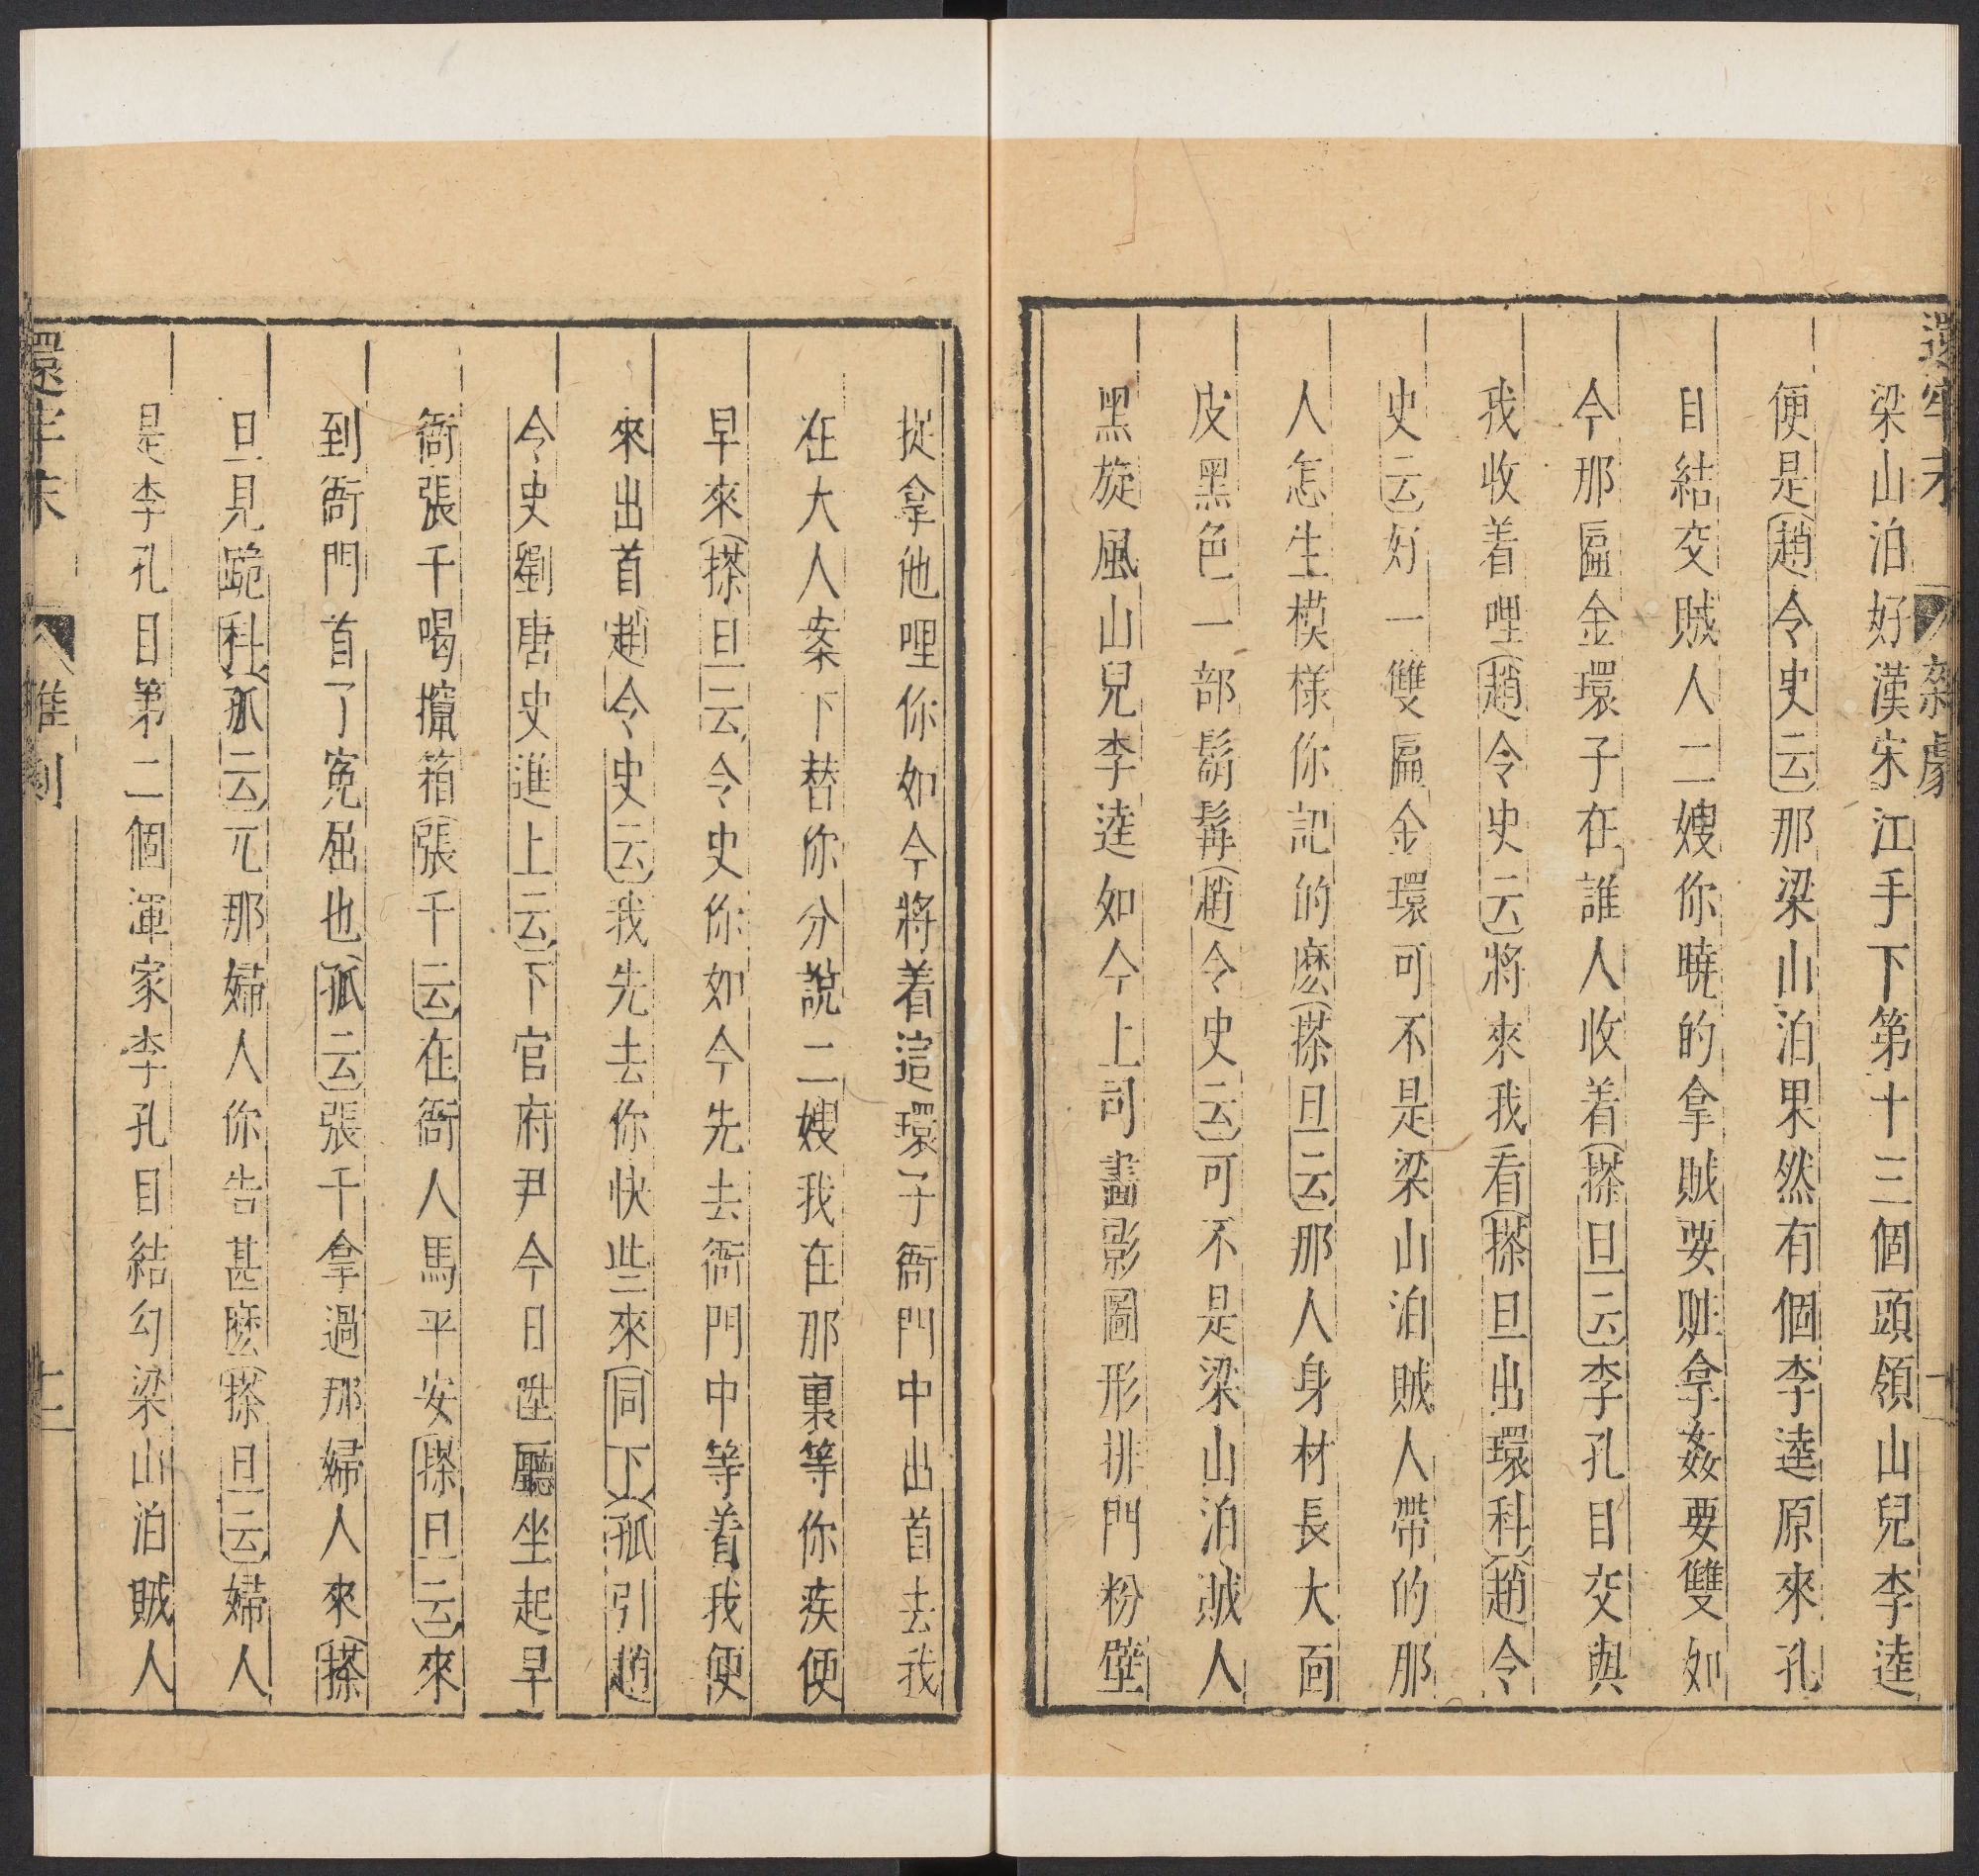 還牢末 雜劇 十
梁山泊好漢宋江手下第十三個頭領山兒李逵
便是趙令史云那梁山泊果然有個李逵原來孔
目結交賊人二嫂你曉的拿賊要贓拿姦要雙如
今那匾金環子在誰人收着搽旦云李孔目交與
我收着哩趙令史云將來我看搽旦出環科趙令
史云好一雙匾金環可不是梁山泊賊人帶的那
人怎生模樣你記的麽搽旦云那人身材長大面
皮黑色一部鬅髯趙令史云可不是梁山泊賊人
黑旋風山兒李逵如今上司畫影圖形排門粉壁
捉拿他哩你如今將着這環子衙門中出首去我
在大人案下替你分說二嫂我在那裏等你疾便
早來搽旦云令史你如今先去衙門中等着我便
來出首趙令史云我先去你快些來同下孤引趙
令史劉唐史進上云下官府尹今日陞廳坐起早
衙張千喝攛箱張千云在衙人馬平安搽旦云來
到衙門首了寃屈也孤云張千拿過那婦人來搽
旦見跪科孤云兀那婦人你告甚麽搽旦云婦人
是李孔目第二個渾家李孔目結勾梁山泊賊人
還牢末 雜劇 十一